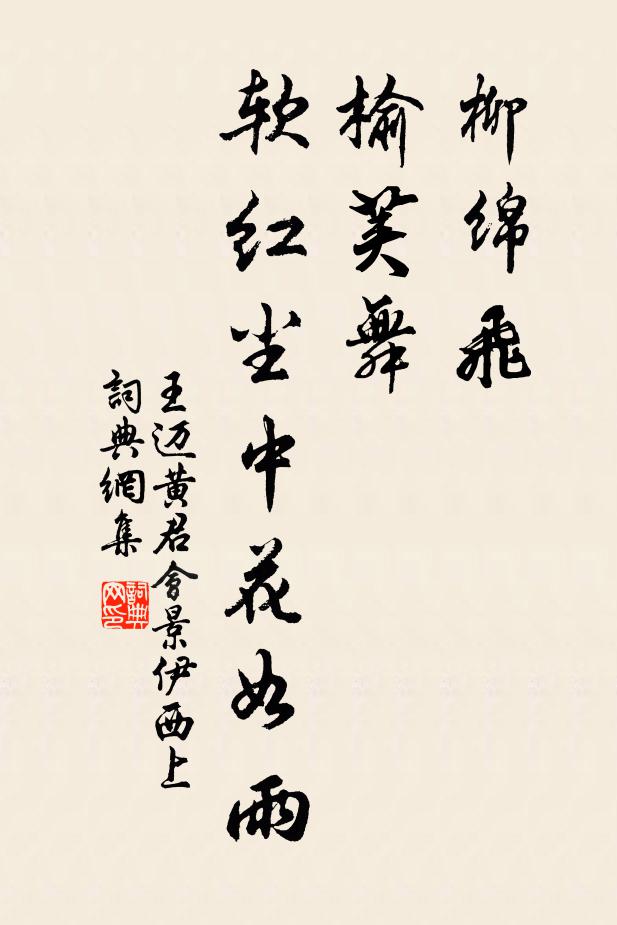 柳绵飞
榆荚舞
软红尘中花如雨
王迈黄君会景伊西上
詞典網集
詞典网印